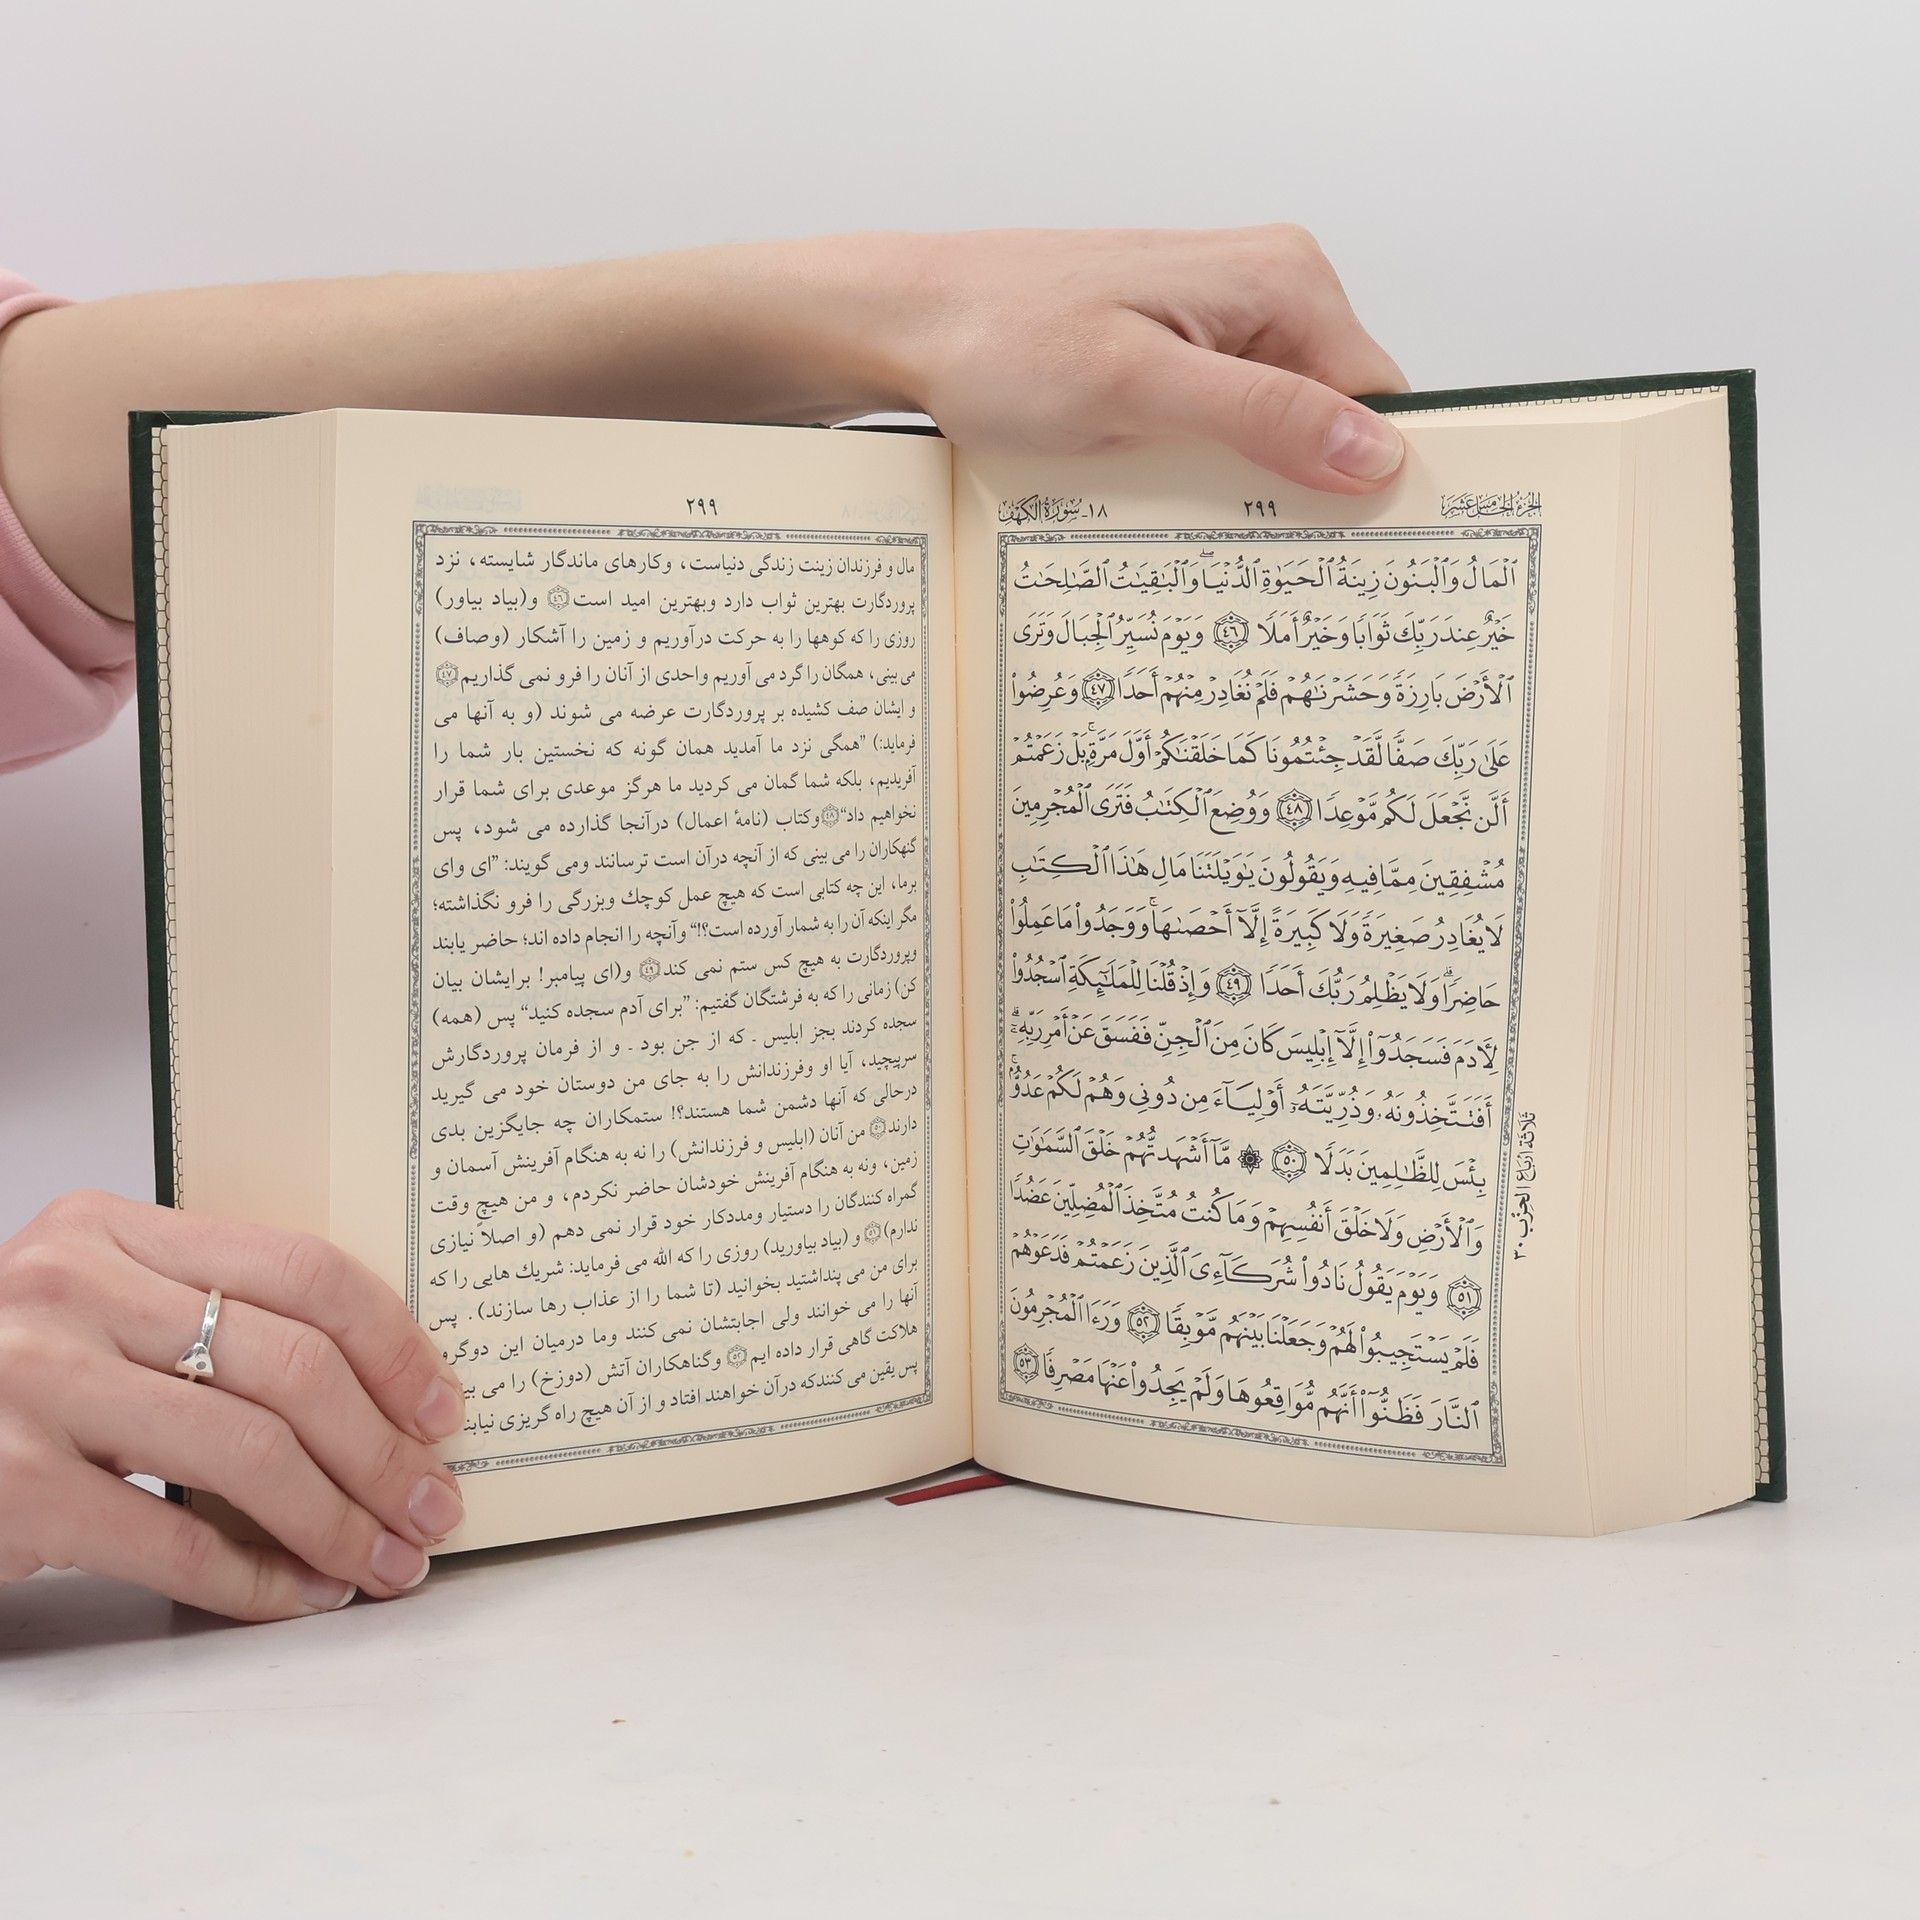 الجزء الخامس عشر
٢٩٩
١٨- سورة الكهف
ٱلۡمَالُ وَٱلۡبَنُونَ زِينَةُ ٱلۡحَيَوٰةِ ٱلدُّنۡيَاۖ وَٱلۡبَٰقِيَٰتُ ٱلصَّٰلِحَٰتُ
خَيۡرٌ عِندَ رَبِّكَ ثَوَابٗا وَخَيۡرٌ أَمَلٗا ٤٦ وَيَوۡمَ نُسَيِّرُ ٱلۡجِبَالَ وَتَرَى
ٱلۡأَرۡضَ بَارِزَةٗ وَحَشَرۡنَٰهُمۡ فَلَمۡ نُغَادِرۡ مِنۡهُمۡ أَحَدٗا ٤٧ وَعُرِضُواْ
عَلَىٰ رَبِّكَ صَفّٗا لَّقَدۡ جِئۡتُمُونَا كَمَا خَلَقۡنَٰكُمۡ أَوَّلَ مَرَّةِۭۚ بَلۡ زَعَمۡتُمۡ
أَلَّن نَّجۡعَلَ لَكُم مَّوۡعِدٗا ٤٨ وَوُضِعَ ٱلۡكِتَٰبُ فَتَرَى ٱلۡمُجۡرِمِينَ
مُشۡفِقِينَ مِمَّا فِيهِ وَيَقُولُونَ يَٰوَيۡلَتَنَا مَالِ هَٰذَا ٱلۡكِتَٰبِ
لَا يُغَادِرُ صَغِيرَةٗ وَلَا كَبِيرَةً إِلَّآ أَحۡصَىٰهَاۚ وَوَجَدُواْ مَا عَمِلُواْ
حَاضِرٗاۗ وَلَا يَظۡلِمُ رَبُّكَ أَحَدٗا ٤٩ وَإِذۡ قُلۡنَا لِلۡمَلَٰٓئِكَةِ ٱسۡجُدُواْ
لِأٓدَمَ فَسَجَدُوٓاْ إِلَّآ إِبۡلِيسَ كَانَ مِنَ ٱلۡجِنِّ فَفَسَقَ عَنۡ أَمۡرِ رَبِّهِۦٓۗ
أَفَتَتَّخِذُونَهُۥ وَذُرِّيَّتَهُۥٓ أَوۡلِيَآءَ مِن دُونِي وَهُمۡ لَكُمۡ عَدُوُّۢۚ
بِئۡسَ لِلظَّٰلِمِينَ بَدَلٗا ٥٠ ۞ مَّآ أَشۡهَدتُّهُمۡ خَلۡقَ ٱلسَّمَٰوَٰتِ
وَٱلۡأَرۡضِ وَلَا خَلۡقَ أَنفُسِهِمۡ وَمَا كُنتُ مُتَّخِذَ ٱلۡمُضِلِّينَ عَضُدٗا
٥١ وَيَوۡمَ يَقُولُ نَادُواْ شُرَكَآءِيَ ٱلَّذِينَ زَعَمۡتُمۡ فَدَعَوۡهُمۡ
فَلَمۡ يَسۡتَجِيبُواْ لَهُمۡ وَجَعَلۡنَا بَيۡنَهُم مَّوۡبِقٗا ٥٢ وَرَءَا ٱلۡمُجۡرِمُونَ
ٱلنَّارَ فَظَنُّوٓاْ أَنَّهُم مُّوَاقِعُوهَا وَلَمۡ يَجِدُواْ عَنۡهَا مَصۡرِفٗا ٥٣
ثلاثة ارباع الحزب ٣٠
٢٩٩
مال و فرزندان زینت زندگی دنیاست، وکارهای ماندگار شایسته، نزد
پروردگارت بهترین ثواب دارد وبهترین امید است ٤٦ و(بیاد بیاور)
روزی را که کوهها را به حرکت درآوریم و زمین را آشکار (وصاف)
می بینی، همگان را گرد می آوریم واحدی از آنان را فرو نمی گذاریم ٤٧
و ایشان صف کشیده بر پروردگارت عرضه می شوند (و به آنها می
فرماید:) ”همگی نزد ما آمدید همان گونه که نخستین بار شما را
آفریدیم، بلکه شما گمان می کردید ما هرگز موعدی برای شما قرار
نخواهیم داد“ ٤٨ وکتاب (نامهٔ اعمال) درآنجا گذارده می شود، پس
گنهکاران را می بینی که از آنچه درآن است ترسانند ومی گویند: ”ای وای
برما، این چه کتابی است که هیچ عمل کوچك وبزرگی را فرو نگذاشته؛
مگر اینکه آن را به شمار آورده است؟!“ وآنچه را انجام داده اند؛ حاضر یابند
وپروردگارت به هیچ کس ستم نمی کند ٤٩ و(ای پیامبر! برایشان بیان
کن) زمانی را که به فرشتگان گفتیم: ”برای آدم سجده کنید“ پس (همه)
سجده کردند بجز ابلیس ـ که از جن بود ـ و از فرمان پروردگارش
سرپیچید، آیا او وفرزندانش را به جای من دوستان خود می گیرید
درحالی که آنها دشمن شما هستند؟! ستمکاران چه جایگزین بدی
دارند ٥٠ من آنان (ابلیس و فرزندانش) را نه به هنگام آفرینش آسمان و
زمین، ونه به هنگام آفرینش خودشان حاضر نکردم، و من هیچ وقت
گمراه کنندگان را دستیار ومددکار خود قرار نمی دهم (و اصلاً نیازی
ندارم) ٥١ و (بیاد بیاورید) روزی را که الله می فرماید: شریك هایی را که
برای من می پنداشتید بخوانید (تا شما را از عذاب رها سازند). پس
آنها را می خوانند ولی اجابتشان نمی کنند وما درمیان این دوگرو
هلاکت گاهی قرار داده ایم ٥٢ وگناهکاران آتش (دوزخ) را می
پس یقین می کنندکه درآن خواهند افتاد و از آن هیچ راه گریزی